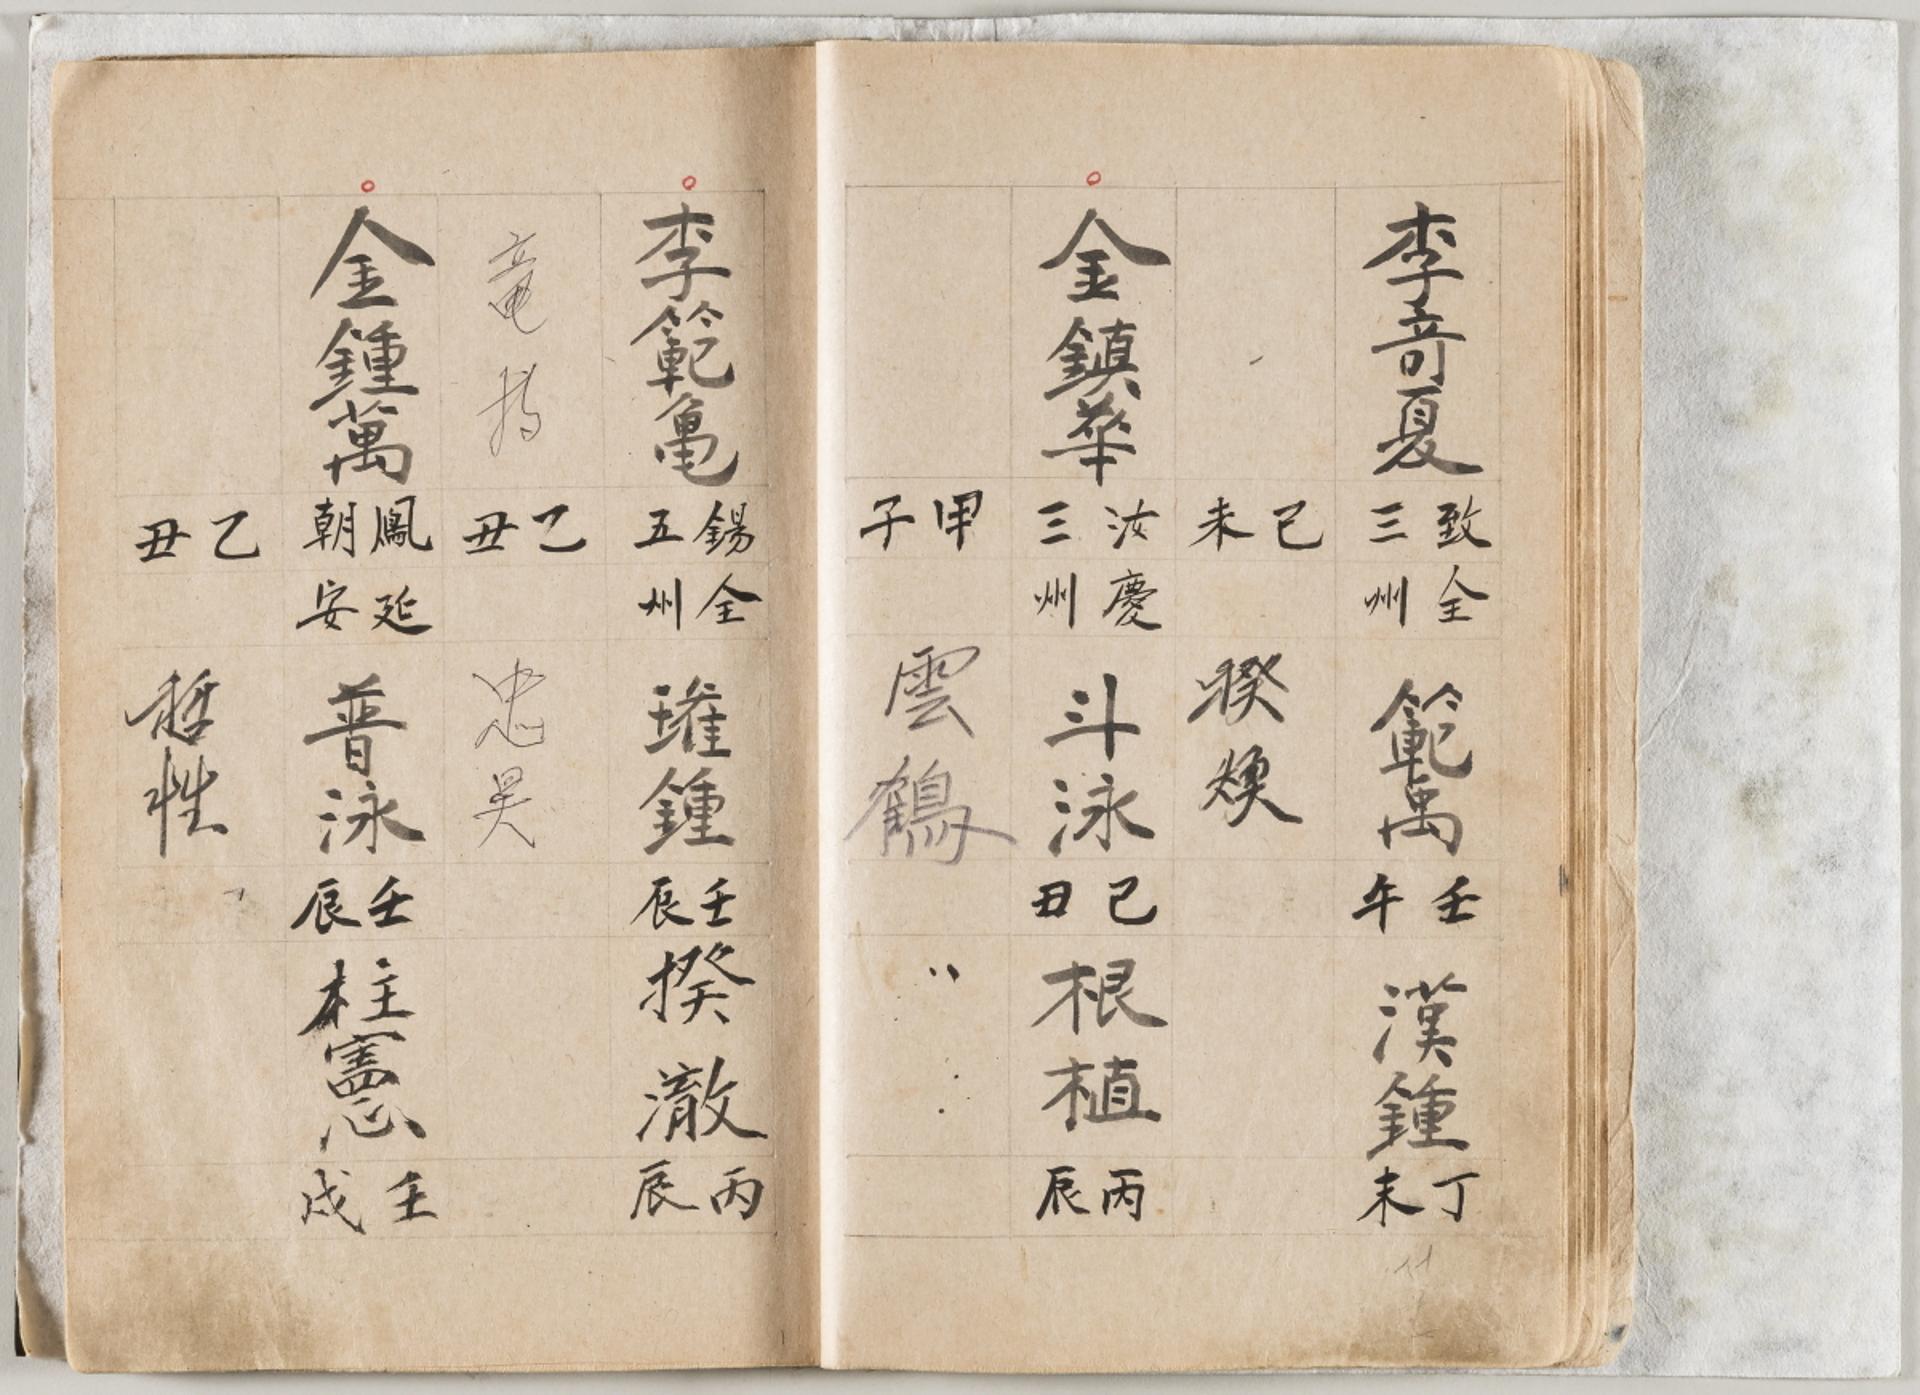 李奇夏
致三
全州
範禹
壬午
漢鍾
丁未
己未
睽煥
金鎮華
汝三
慶州
斗泳
己丑
根植
丙辰
甲子
雲鶴
李範亀
錫五
全州
璀鍾
壬辰
揆澈
丙辰
竜
乙丑
忠昊
金鍾萬
鳳朝
延安
普泳
壬辰
柱憲
壬戌
乙丑
哲性